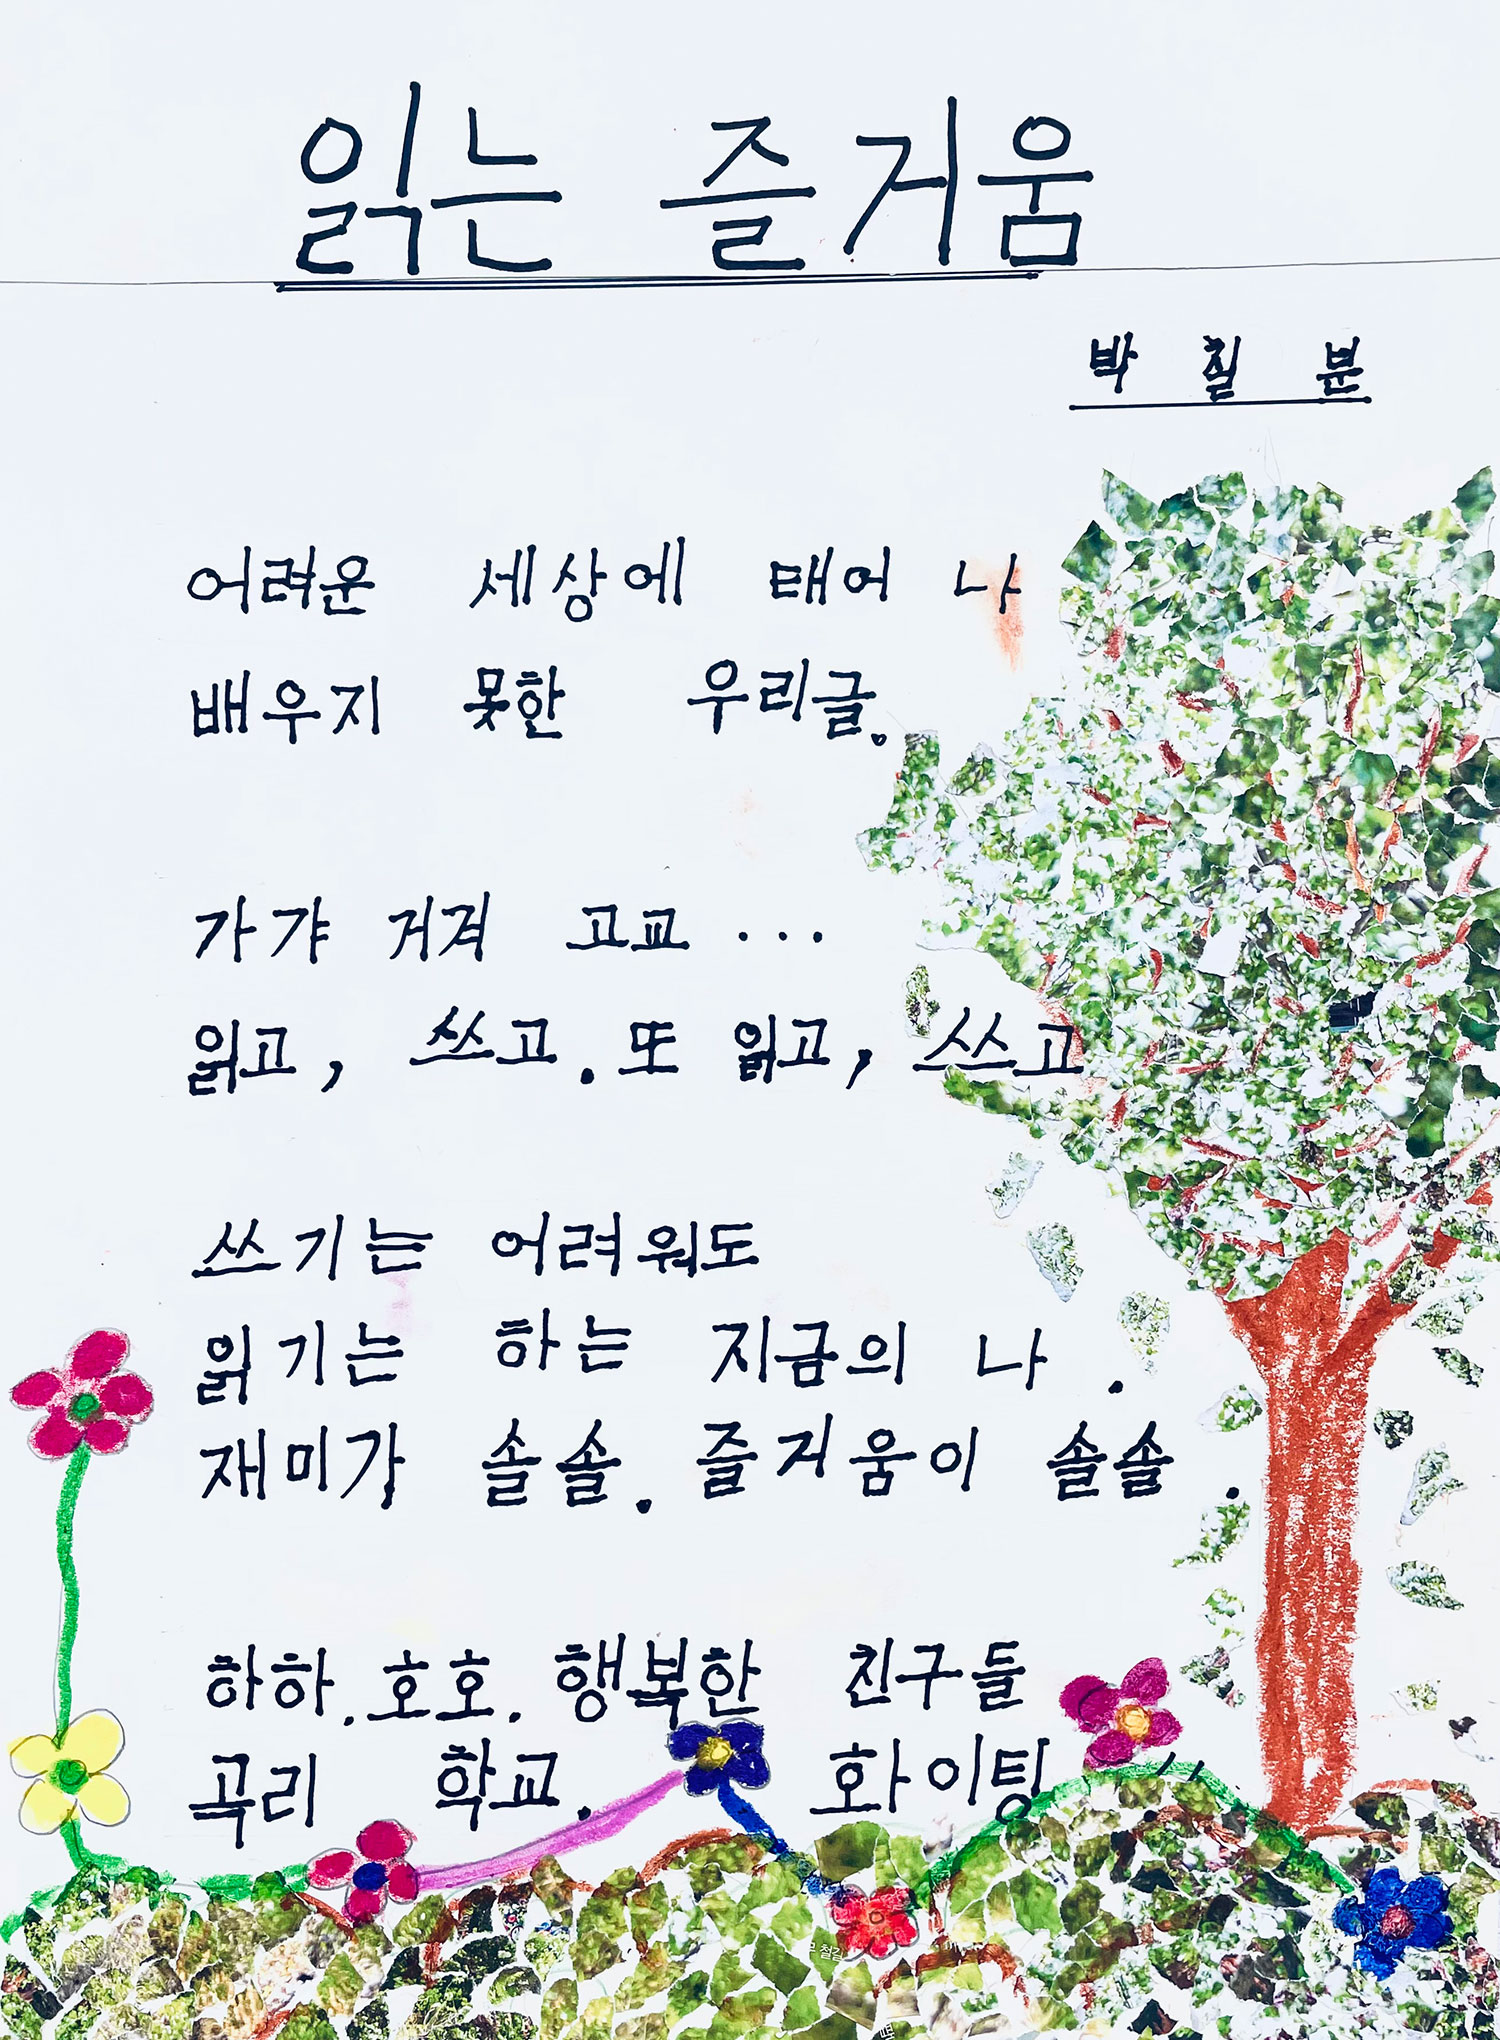 읽는 즐거움
박 칠 분
어려운 세상에 태어 나
배우지 못한 우리글.
가갸 거겨 고교 ...
읽고, 쓰고. 또 읽고, 쓰고
쓰기는 어려워도
읽기는 하는 지금의 나.
재미가 솔솔. 즐거움이 솔솔.
하하. 호호. 행복한 친구들
곡리 학교. 화이팅